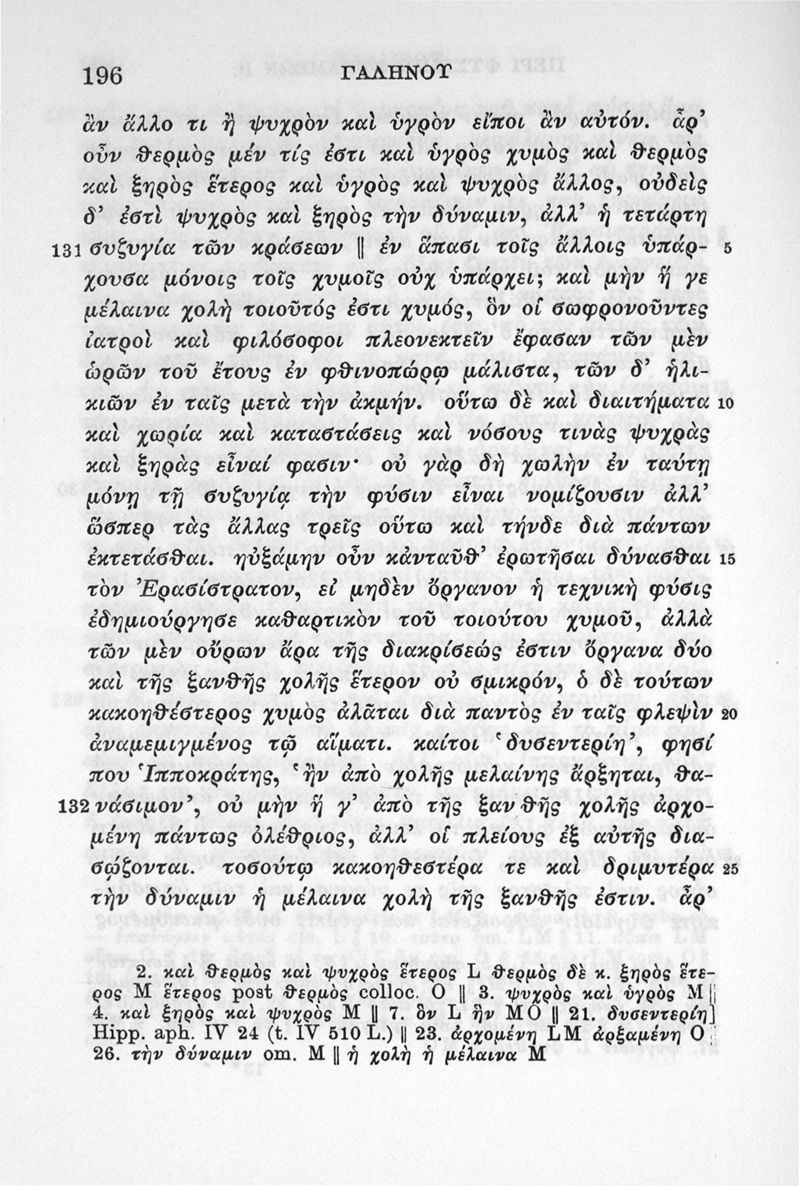 196 ΓΑΛΗΝΟΥ
ἂν ἄλλο τι ἢ ψυχρὸν καὶ ὑγρὸν εἴποι ἂν αὐτόν. ἆρ’
οὖν θερμὸς μέν τίς ἐστι καὶ ὑγρὸς χυμὸς καὶ θερμὸς
καὶ ξηρὸς ἕτερος καὶ ὑγρὸς καὶ ψυχρὸς ἄλλος, οὐδεὶς
δ’ ἐστὶ ψυχρὸς καὶ ξηρὸς τὴν δύναμιν, ἀλλ’ ἡ τετάρτη
131 συζυγία τῶν κράσεων || ἐν ἅπασι τοῖς ἄλλοις ὑπάρ- 5
χουσα μόνοις τοῖς χυμοῖς οὐχ ὑπάρχει; καὶ μὴν ἥ γε
μέλαινα χολὴ τοιοῦτός ἐστι χυμός, ὃν οἱ σωφρονοῦντες
ἰατροὶ καὶ φιλόσοφοι πλεονεκτεῖν ἔφασαν τῶν μὲν
ὡρῶν τοῦ ἔτους ἐν φθινοπώρῳ μάλιστα, τῶν δ’ ἡλι-
κιῶν ἐν ταῖς μετὰ τὴν ἀκμήν. οὕτω δὲ καὶ διαιτήματα 10
καὶ χωρία καὶ καταστάσεις καὶ νόσους τινὰς ψυχρὰς
καὶ ξηρὰς εἶναί φασιν· οὐ γὰρ δὴ χωλὴν ἐν ταύτῃ
μόνῃ τῇ συζυγίᾳ τὴν φύσιν εἶναι νομίζουσιν ἀλλ’
ὥσπερ τὰς ἄλλας τρεῖς οὕτω καὶ τήνδε διὰ πάντων
ἐκτετάσθαι. ηὐξάμην οὖν κἀνταῦθ’ ἐρωτῆσαι δύνασθαι 15
τὸν Ἐρασίστρατον, εἰ μηδὲν ὄργανον ἡ τεχνικὴ φύσις
ἐδημιούργησε καθαρτικὸν τοῦ τοιούτου χυμοῦ, ἀλλὰ
τῶν μὲν οὔρων ἄρα τῆς διακρίσεώς ἐστιν ὄργανα δύο
καὶ τῆς ξανθῆς χολῆς ἕτερον οὐ σμικρόν, ὁ δὲ τούτων
κακοηθέστερος χυμὸς ἀλᾶται διὰ παντὸς ἐν ταῖς φλεψὶν 20
ἀναμεμιγμένος τῷ αἵματι. καίτοι ‘δυσεντερίη’, φησί
που Ἱπποκράτης, ‘ἢν ἀπὸ χολῆς μελαίνης ἄρξηται, θα-
132 νάσιμον’, οὐ μὴν ἥ γ’ ἀπὸ τῆς ξανθῆς χολῆς ἀρχο-
μένη πάντως ὀλέθριος, ἀλλ’ οἱ πλείους ἐξ αὐτῆς δια-
σῴζονται. τοσούτῳ κακοηθεστέρα τε καὶ δριμυτέρα 25
τὴν δύναμιν ἡ μέλαινα χολὴ τῆς ξανθῆς ἐστιν. ἆρ’
2. καὶ θερμὸς καὶ ψυχρὸς ἕτερος L θερμὸς δὲ κ. ξηρὸς ἕτε-
ρος M ἕτερος post θερμὸς colloc. O || 3. ψυχρὸς καὶ ὑγρὸς M ||
4. καὶ ξηρὸς καὶ ψυχρὸς M || 7. ὃν L ἣν MO || 21. δυσεντερίη]
Hipp. aph. IV 24 (t. IV 510 L.) || 23. ἀρχομένη LM ἀρξαμένη O ||
26. τὴν δύναμιν om. M || ἡ χολὴ ἡ μέλαινα M